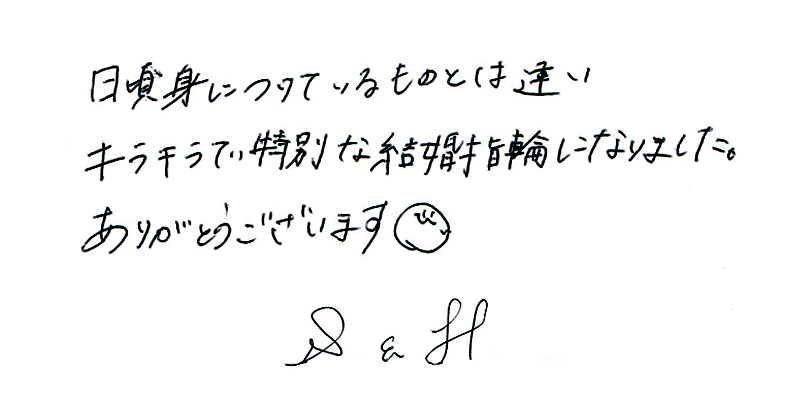 日頃身につけているものとは違い
キラキラで特別な結婚指輪になりました。
ありがとうございます
S & H